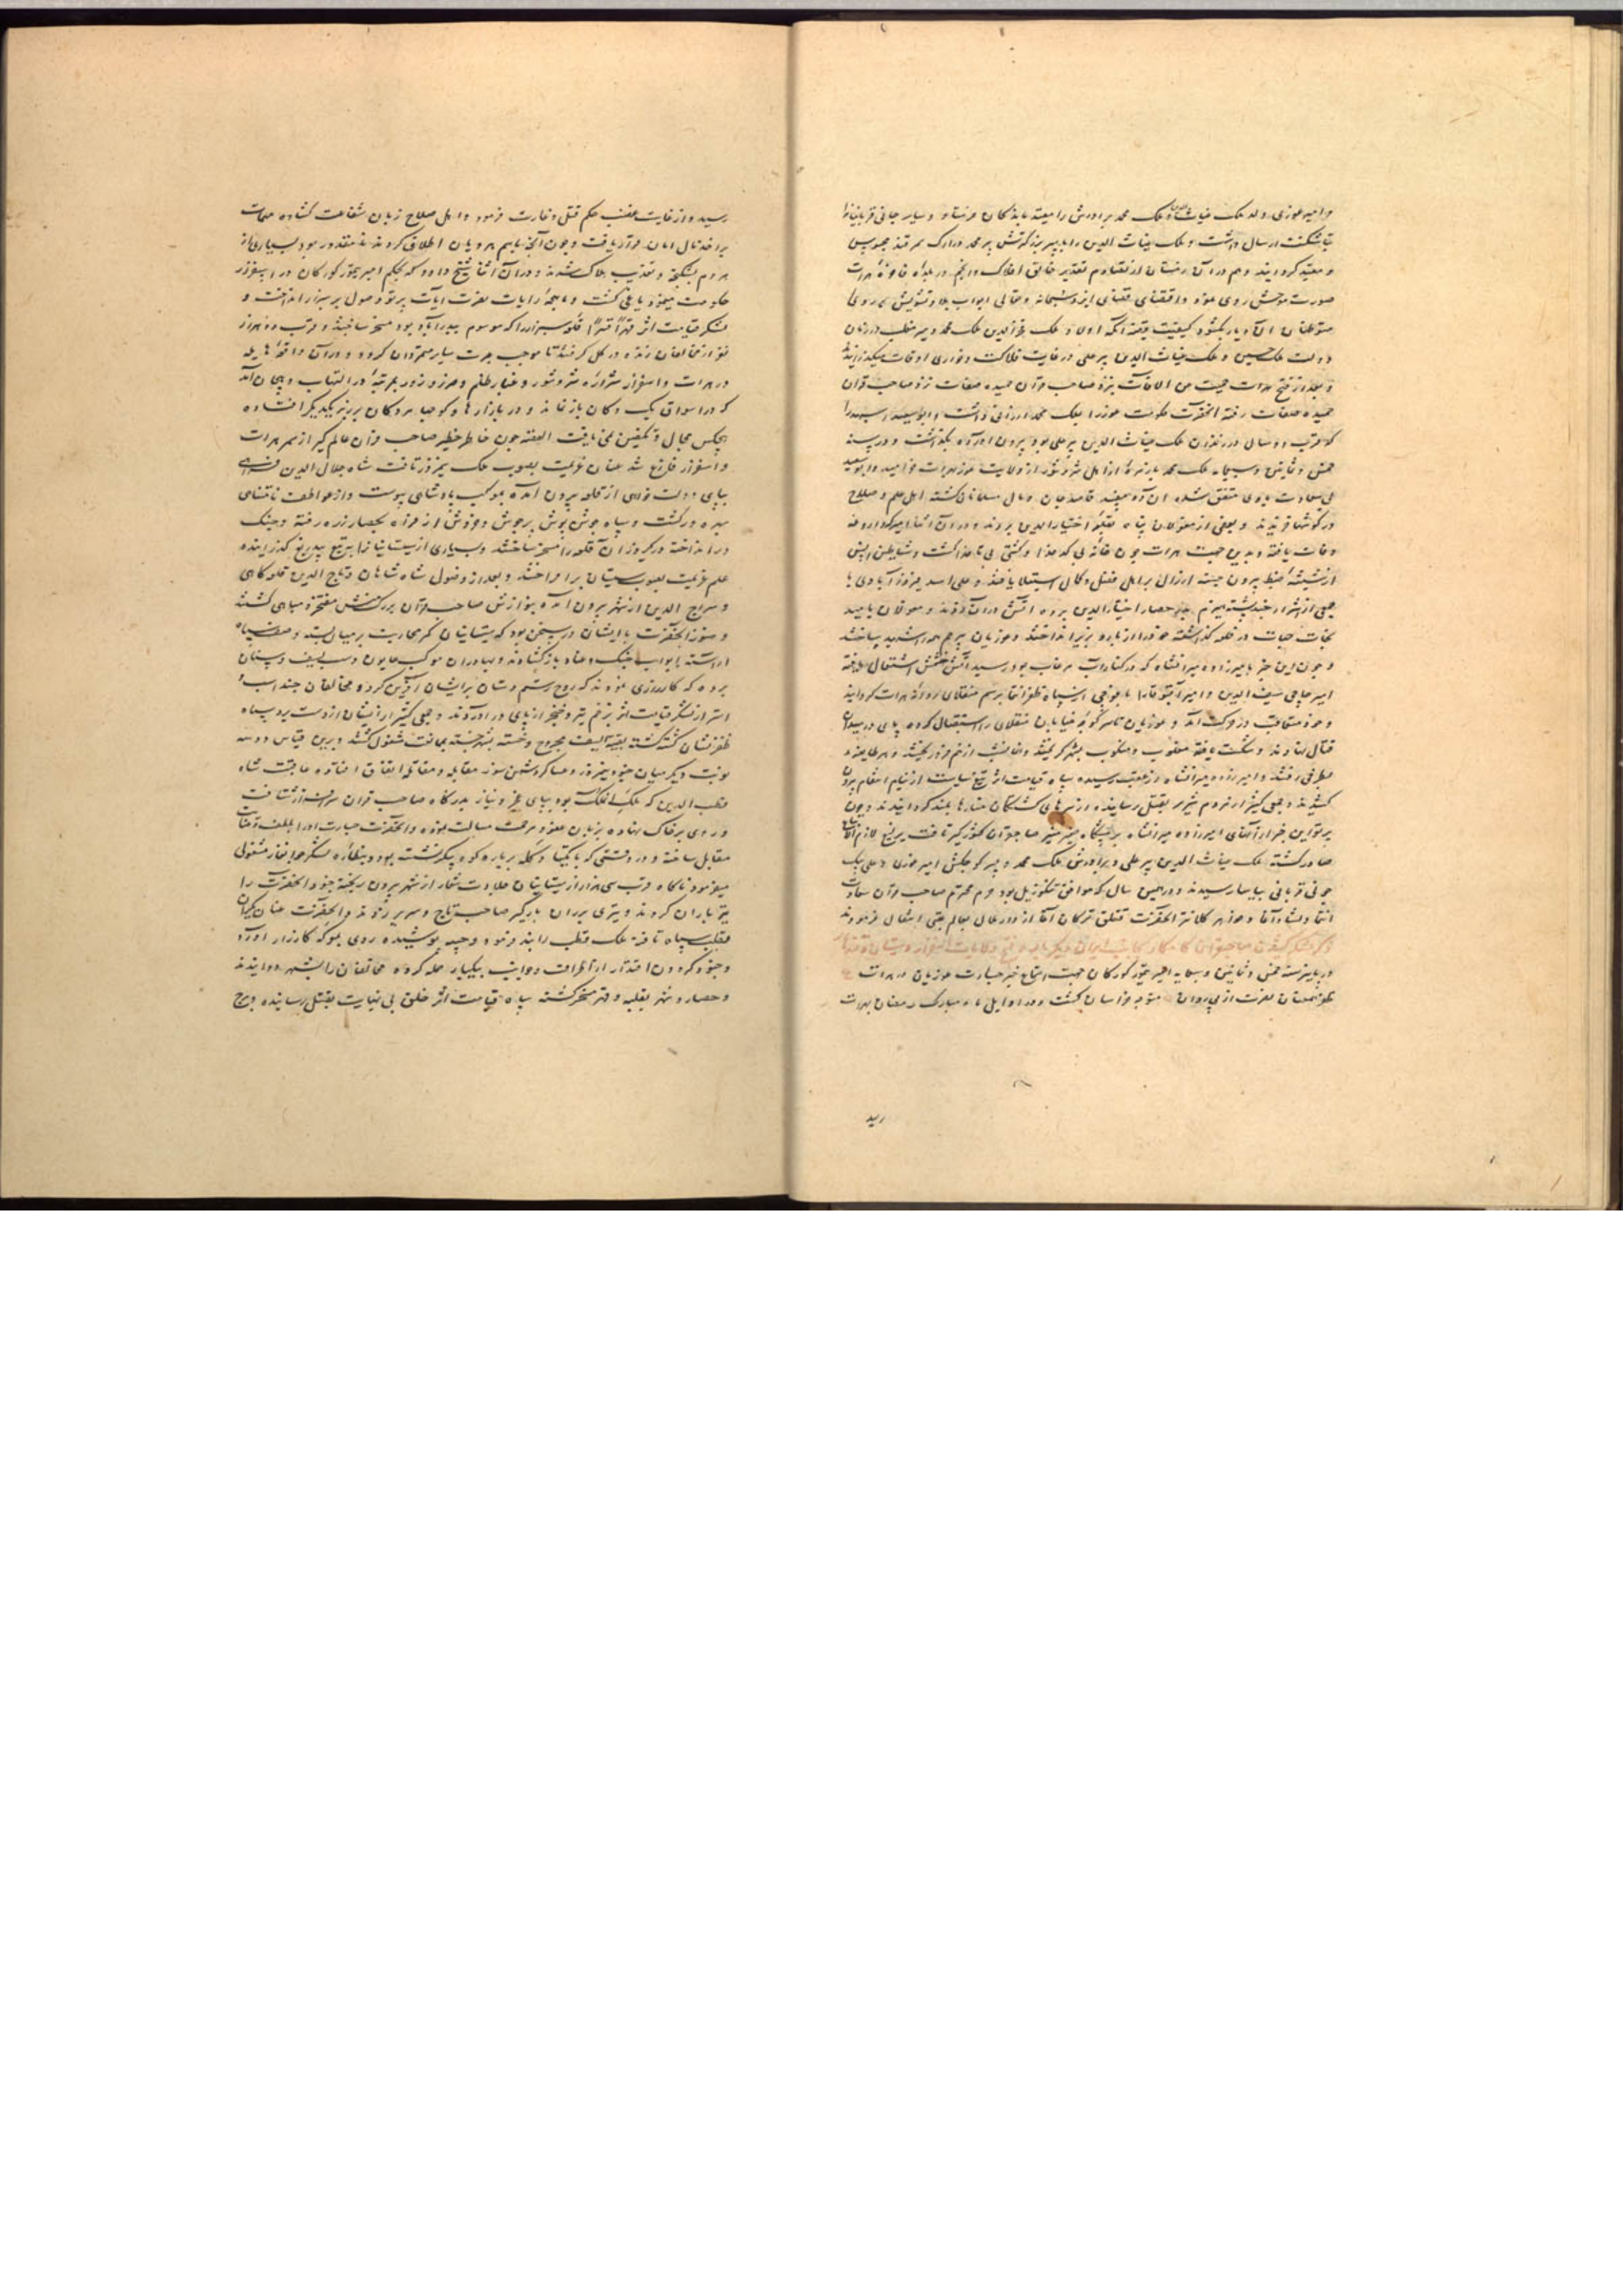 و امیر غوری ولد ملک غیاث الدین و ملک محمد برادرش را مقید به اندکان فرستاد و سایر جانی قربانیانرا
بتاشکنت ارسال داشت و ملک غیاث الدین را با پسر بزرگترش پیر محمد در ارک سمرقند محبوس
و مقید گردانید و هم در آن زمستان از تقدیر خالق افلاک و انجم در بلده فاخره هرات
صورت موحش روی نمود و اقتضای قضای ایزد سبحانه و تعالی ابواب بلا و تشویش بر روی
متوطنان آن دیار بگشود کیفیت واقعه آنکه اولاد ملک فخر الدین ملک محمد و میر در زمان
دولت ملک حسین و ملک غیاث الدین پیر علی در غایت فلاکت و خواری اوقات میگذرانیدند
و بعد از فتح هرات نزد صاحب قران
حمیده صفات رفته آنحضرت حکومت غور را بملک محمد ارزانی داشت و ابو سعید اسپهبد را
که قرب ده سال در زندان ملک غیاث الدین پیر علی بود بیرون آورده بگذاشت و در سنه
خمس و ثمانین و سبعمایه ملک محمد با زمره از اهل شر و شور از ولایت غور بهرات خرامید و ابو سعید
بی سعادت با وی متفق شده آن دو مفسد قاصد جان و مال مسلمانان گشته اهل علم و صلاح
در گوشها خزیدند و بعضی از مغولان پناه بقلعه اختیار الدین بردند و در آن اثنا امیر داروغه
وفات یافته و بدین جهت هرات چون خانه بی کدخدا و کشتی بی ناخدا گشت و شیاطین انس
از شیشه ضبط بیرون جسته ارذال بر اهل فضل و کمال استیلا یافتند و علی اسد فیروز آبادی با
جمعی از اشرار چند پشته هیزم بدر حصار اختیار الدین برده آتش در آن زدند و مغولان بامید
نجات حیات در قلعه گذاشته خود را از باره بزیر انداختند و غوریان بیرحم همه را شهید ساختند
و چون این خبر بامیرزاده میرانشاه که در کنار آب مرغاب بود رسید آتش خشمش اشتعال یافته
امیر حاجی سیف الدین و امیر آقبوقا را با فوجی از سپاه ظفر انتما برسم منقلای روانه هرات گردانید
و خود متعاقب در حرکت آمد و غوریان تا سر کوچه خیابان منقلای را استقبال کرده پای در میدان
قتال نهادند و شکست یافته مغلوب و منکوب بشهر گریختند و شب از هم فرو ریختند و هر طایفه
بطرفی رفتند و امیرزاده میرانشاه از عقب رسیده سپاه قیامت اثر تیغ سیاست از نیام انتقام بیرون
کشیدند و جمعی کثیر از مردم شریر بقتل رسانیده از سرهای کشتگان منارها بلند گردانیدند و چون
پرتو این خبر از انهای امیرزاده میرانشاه بر پیشگاه ضمیر صاحبقران کشورگیر تافت یرلیغ لازم الاتباع
صادر گشته ملک غیاث الدین پیر علی و برادرش ملک محمد و پسر کوچکش امیر غوری و علی بیک
جونی قربانی بیاسا رسیدند و در همین سال که موافق تنکوزئیل بود حرم محترم صاحب قران سعادت
انتما دلشاد آغا و خواهر کلانتر آنحضرت قتلق ترکان آغا از دار ملال بعالم عقبی انتقال فرمودند
ذکر لشکر کشیدن صاحبقران کامکار بجانب ایران دیگر بار و فتح ولایات اسفزار و سیستان و قندهار
در پاییز سنه خمس و ثمانین و سبعمایه امیر تیمور گورکان جهت استماع خبر جسارت غوریان در هرات
ظفر همعنان نصرت از پی روان متوجه خراسان گشت و در اوایل ماه مبارک رمضان بهرات
رسید
رسید و از غایت غضب حکم قتل و غارت فرمود و اهل صلاح زبان شفاعت گشاده مهمات
بر اخذ مال امان قرار یافت و چون آنچه باسم هرویان اطلاق کردند نه مقدور بود بسیاری از
مردم بشکنجه و تعذیب هلاک شدند و در آن اثنا شیخ داود که بحکم امیر تیمور گورکان در اسفزار
حکومت مینمود یاغی گشت و ماهچه رایات نصرت آیات پرتو وصول بر سبزار انداخت و
لشکر قیامت اثر قهرا قسرا قلعه سبزار را که موسوم ببدرآباد بود مسخر ساختند و قرب دو هزار
نفر از مخالفان زنده در گل گرفتند تا موجب عبرت سایر متمردان گردد و در آن واقعه هایله
در هرات و اسفزار شراره شر و شور و غبار ظلم و زور بمرتبه در التهاب و هیجان آمد
که در اسواق یک دکان باز نماند و در بازارها و کوچها مردگان بر زبر یکدیگر افتاده
هیچکس مجال تکفین نمی یافت القصه چون خاطر خطیر صاحب قران عالم گیر از مهم هرات
و اسفزار فارغ شد عنان عزیمت بصوب ملک نیمروز تافت شاه جلال الدین فراهی
بپای دولت خواهی از قلعه بیرون آمده بموکب پادشاهی پیوست و از عواطف نامتناهی
بهره ور گشت و سپاه جوش پوش پرجوش و خروش از فراه بحصار زره رفته و جنگ
در انداخته در یکروز آن قلعه را مسخر ساختند و بسیاری از سیستانیانرا بر تیغ بیدریغ گذرانیده
علم عزیمت بصوب سیستان برافراختند و بعد از وصول شاه شاهان و تاج الدین
و سراج الدین از شهر بیرون آمده بنوازش صاحب قران بزرگ منش مفتخر و مباهی گشتند
و هنوز آنحضرت با ایشان در سخن بود که سیستانیان کمر محاربت بر میان بسته و صف سپاه
آراسته ابواب جنگ و عناد باز گشادند و بهادران موکب همایون دست بسیف و سنان
برده که کارزاری نمودند که روح رستم دستان بر ایشان آفرین کرد و مخالفان چند اسب و
استر از لشکر قیامت اثر بزخم تیر و خنجر از پای در آوردند و جمعی کثیر از ایشان از دست برد سپاه
ظفر نشان کشته گشته بقیة السیف مجروح و خسته بشهر جسته بمدافعت مشغول گشتند و برین قیاس دو سه
نوبت دیگر میان جنود نیمروز و عساکر دشمن سوز مقابله و مقاتله اتفاق افتاده عاقبت شاه
قطب الدین که ملک آن ملک بود بپای عجز و نیاز بدرگاه صاحب قران سرافراز شتافت
و روی بر خاک نهاده بزبان عفو و مرحمت مسالت نموده و آنحضرت جسارت او را بلطف و عنایت
مقابل ساخته و در وقتی که با یکتا دگله بر باره کوه پیکر نشست بود و بنظاره لشکر مشغولی
میفرمود ناگاه قرب سی هزار از سیستانیان جلادت شعار از شهر بیرون ریخته جنود آنحضرت را
تیر باران کردند و تیری بر ران بارگیر صاحب تاج و سریر زدند و آنحضرت عنان یکران
بقلب سپاه تافته ملک قطب را بند فرمود و جیبه پوشیده روی بمعرکه کارزار آورد
و جنود گردون اقتدار از اطراف و جوانب بیکبار حمله کرده مخالفان را بشهر دوانیدند
و حصار و شهر بغلبه و قهر مسخر گشته سپاه قیامت اثر خلق بی نهایت بقتل رسانیده و برج